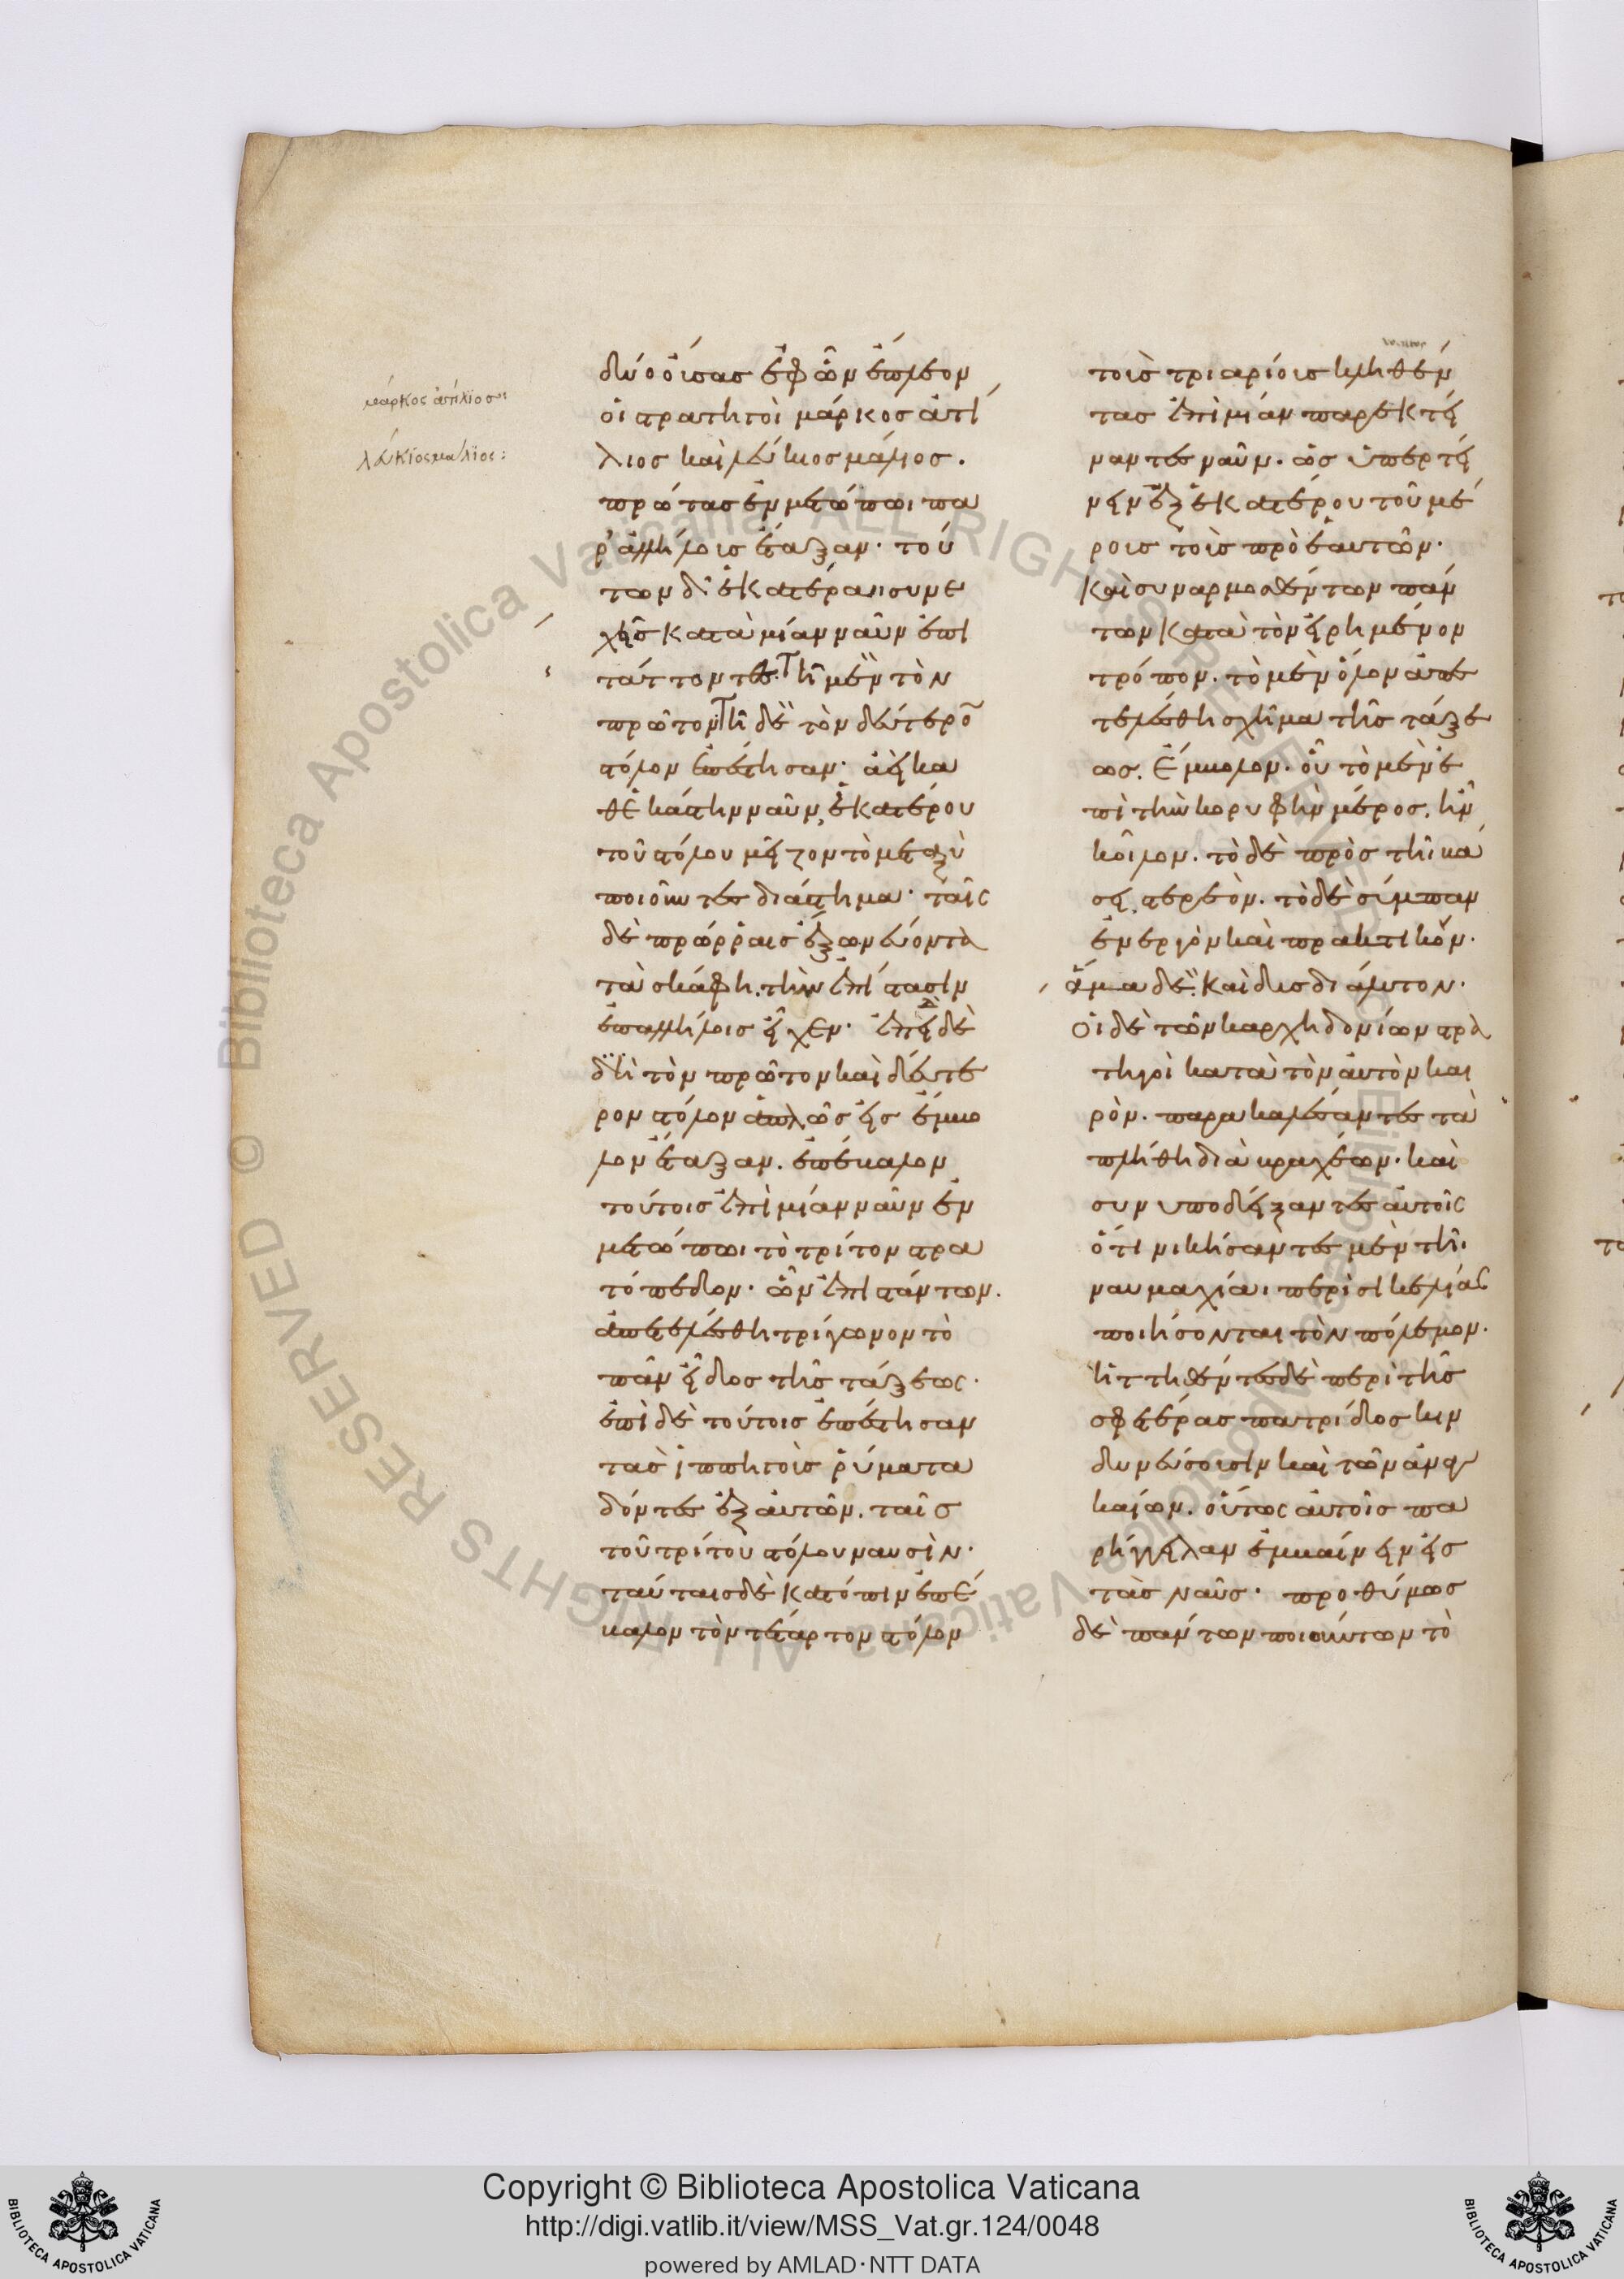 μάρκος ἀτίλιος:
λεύκιος μάλιος:
δύο οὔσας ἐφ ὧν ἔπλεον
οἱ στρατηγοὶ μάρκος ἀτί
λιος καὶ λεύκιος μάλιος.
πρώτας ἐν μετώπωι πα
ρ' ἀλλήλοις ἔταξαν· τού
των δ' ἑκατέραι συνε
χῆς κατὰ μίαν ναῦν ἐπι
τάττοντες. τῆι μὲν τὸν
πρῶτον τῆι δὲ τὸν δεύτερο̃
στόλον ἐπέστησαν· ἀεὶ κα
θ ἑκάστην ναῦν, ἑκατέρου
τοῦ στόλου μεῖζον τὸ μεταξὺ
ποιοῦντες διάστημα· ταῖς
δὲ πρώρραις ἔξω νεύοντα
τὰ σκάφη. τὴν ἐπίστασιν
ἐπαλλήλοις εἶχεν· ἐπεὶ δὲ
δὴ τὸν πρῶτον καὶ δεύτε
ρον στόλον ἁπλῶς εἰς ἔμβο
λον ἔταξαν. ἐπέβαλον
τούτοις ἐπὶ μίαν ναῦν ἐν
μετώπωι τὸ τρίτον στρα
τόπεδον. ὧν ἐπιστάντων.
ἀπετελέσθη τρίγωνον τὸ
πᾶν εἶδος τῆς τάξεως.
ἐπὶ δὲ τούτοις ἐπέστησαν
τὰς ἱππηγοὺς ῥύματα
δόντες ἐξ αὐτῶν. ταῖς
τοῦ τρίτου στόλου ναυσὶν.
ταύταις δὲ κατόπιν ἐπέ
βαλον τὸν τέταρτον στόλον
τοὺς τριαρίους κληθέν
τας ἐπὶ μίαν παρεκτεί
ναντες ναῦν. ὡς ὑπερτεί
νειν ἐξ ἑκατέρου τοῦ μέ
ρους τοὺς πρὸ ἑαυτῶν.
καὶ συναρμοσθέντων πάν
των κατὰ τὸν εἰρημένον
τρόπον. τὸ μὲν ὅλον ἀπε
τελέσθη σχῆμα τῆς τάξε
ως. ἔμβολον. οὗ τὸ μὲν ἐ
πὶ τὴν κορυφὴν μέρος. ἦν
κοῖλον. τὸ δὲ πρὸς τῆι βά
σει, στερεόν. τὸ δὲ σύμπαν
ἐνεργὸν καὶ πρακτικόν.
ἅμα δὲ. καὶ δυσδιάλυτον.
οἱ δὲ τῶν καρχηδονίων στρα
τηγοὶ κατὰ τὸν αὐτὸν και
ρὸν. παρακαλέσαντες τὰ
πλήθη διὰ βραχέων. καὶ
συνυποδείξαντες αὐτοῖς
ὅτι νικήσαντες μὲν τῆι
ναυμαχίαι περὶ σικελίας
ποιήσονται τὸν πόλεμον.
ἡττηθέντες δὲ περὶ τῆς
σφετέρας πατρίδος κιν
δυνεύσουσιν καὶ τῶν ἀναγ
καίων. οὕτως αὐτοῖς πα
ρήγγειλαν ἐμβαίνειν εἰς
τὰς ναῦς. προθύμως
δὲ πάντων ποιούντων τὸ
Biblioteca Apostolica Vaticana ALL RIGHTS RESERVED ©
Copyright © Biblioteca Apostolica Vaticana
http://digi.vatlib.it/view/MSS_Vat.gr.124/0048
powered by AMLAD·NTT DATA
BIBLIOTECA APOSTOLICA VATICANA
BIBLIOTECA APOSTOLICA VATICANA